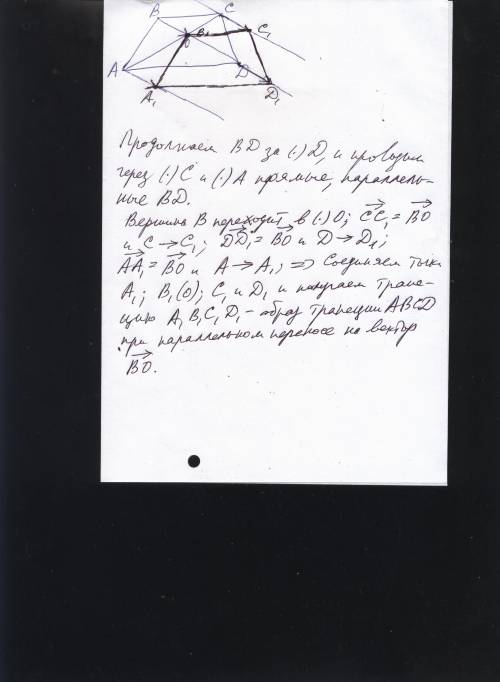 B C
B₁ C₁
O
A D
A₁ D₁
Продолжаем BD за (·) D, и проводим
через (·) C и (·) A прямые, параллель-
ные BD.
Вершина B переходит в (·) O; CC₁ = BO
и C → C₁; DD₁ = BO и D → D₁;
AA₁ = BO и A → A₁; ⇒ Соединяем точки
A₁; B₁(O); C₁ и D₁ и получаем трапе-
цию A₁B₁C₁D₁ - образ трапеции ABCD
при параллельном переносе на вектор
BO.